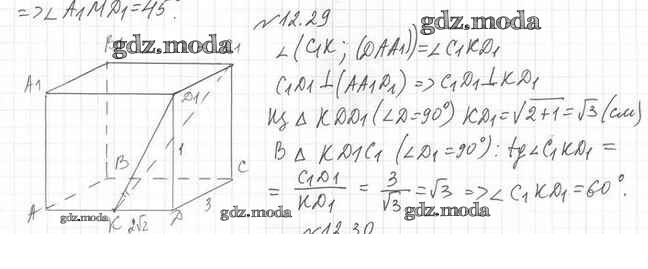 => ∠ A1MD1=45°.
№12.29
gdz.moda
gdz.moda
∠(C1K; (DAA1))=∠C1KD1
C1D1⊥(AA1D1) => C1D1⊥KD1
Из Δ KDD1 (∠D=90°) KD1=√2+1=√3 (см)
В Δ KD1C1 (∠D1=90°): tg∠C1KD1 =
= C1D1/KD1 = 3/√3 =√3 =>∠C1KD1=60°.
A1
D1
1
B
C
A
K
2√2
D
3
gdz.moda
gdz.moda
gdz.moda
№12.30